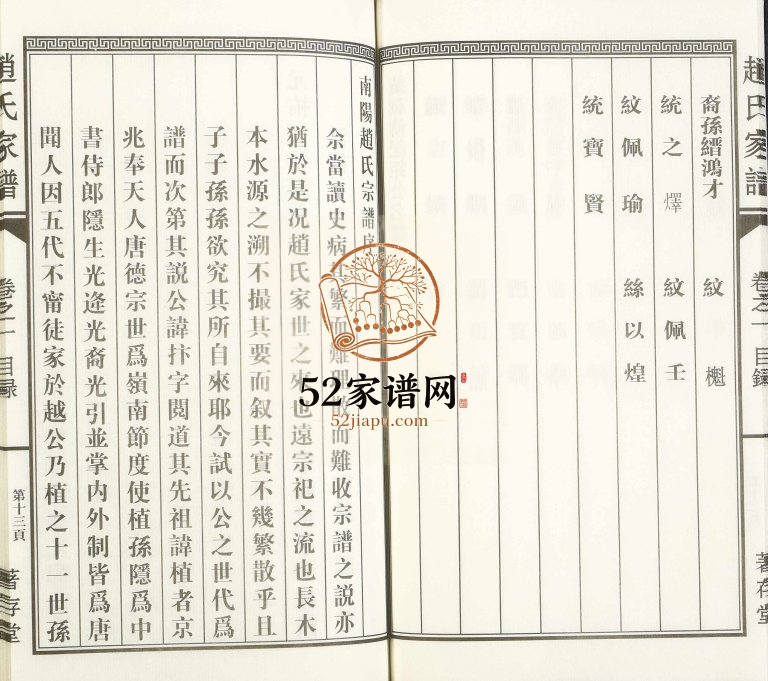 趙氏家譜
卷之一 目錄
著存堂
裔孫縉鴻才 紋
統之燡 紋佩壬
紋佩瑜 絲以煌
統寶賢
南陽趙氏宗譜序
余當讀史病其繁而難理散而難收宗譜之說亦
猶於是况趙氏家世之來也遠宗祀之流也長木
本水源之溯不撮其要而叙其實不幾繁散乎且
子子孫孫欲究其所自來耶今試以公之世代爲
譜而次第其説公諱抃字閲道其先祖諱植者京
兆奉天人唐德宗世爲嶺南節度使植孫隱爲中
書侍郎隱生光逢光裔光引並掌内外制皆爲唐
聞人因五代不甯徒家於越公乃植之十一世孫
趙氏家譜
卷之一 目录
第十三頁
著存堂
52家谱网
52jiapu.com